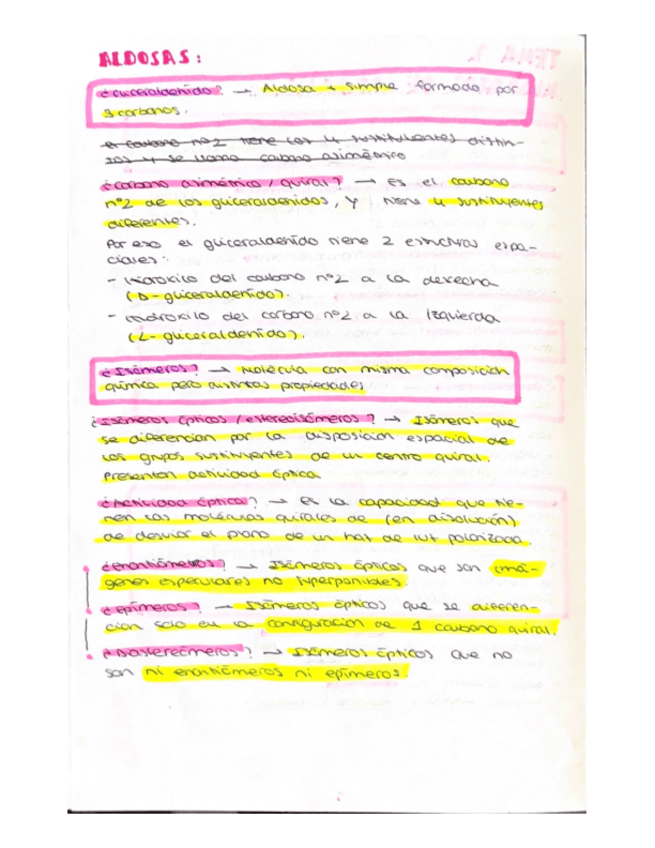 ALDOSAS:
¿Gliceraldehído? → Aldosa + simple formada por
3 carbonos.
el carbono nº2 tiene los 4 sustituyentes distin-
tos y se llama carbono asimétrico
¿carbono asimétrico / quiral? → Es el carbono
nº2 de los gliceraldehídos, y tiene 4 sustituyentes
diferentes.
Por eso el gliceraldehído tiene 2 estructuras espa-
ciales:
- Hidroxilo del carbono nº2 a la derecha
(D-gliceraldehído).
- Hidroxilo del carbono nº2 a la izquierda
(L-gliceraldehído).
¿Isómeros? → Molécula con misma composición
química pero distintas propiedades
¿Isómeros ópticos / estereoisómeros? → Isómeros que
se diferencian por la disposición espacial de
los grupos sustituyentes de un centro quiral.
Presentan actividad óptica
¿Actividad óptica? → Es la capacidad que tie-
nen las moléculas quirales de (en disolución)
de desviar el plano de un haz de luz polarizada.
¿enantiómeros? → Isómeros ópticos que son imá-
genes especulares no superponibles.
¿epímeros? → Isómeros ópticos que se diferen-
cian solo en la configuración de 1 carbono quiral.
¿Diastereómeros? → Isómeros ópticos que no
son ni enantiómeros ni epímeros.